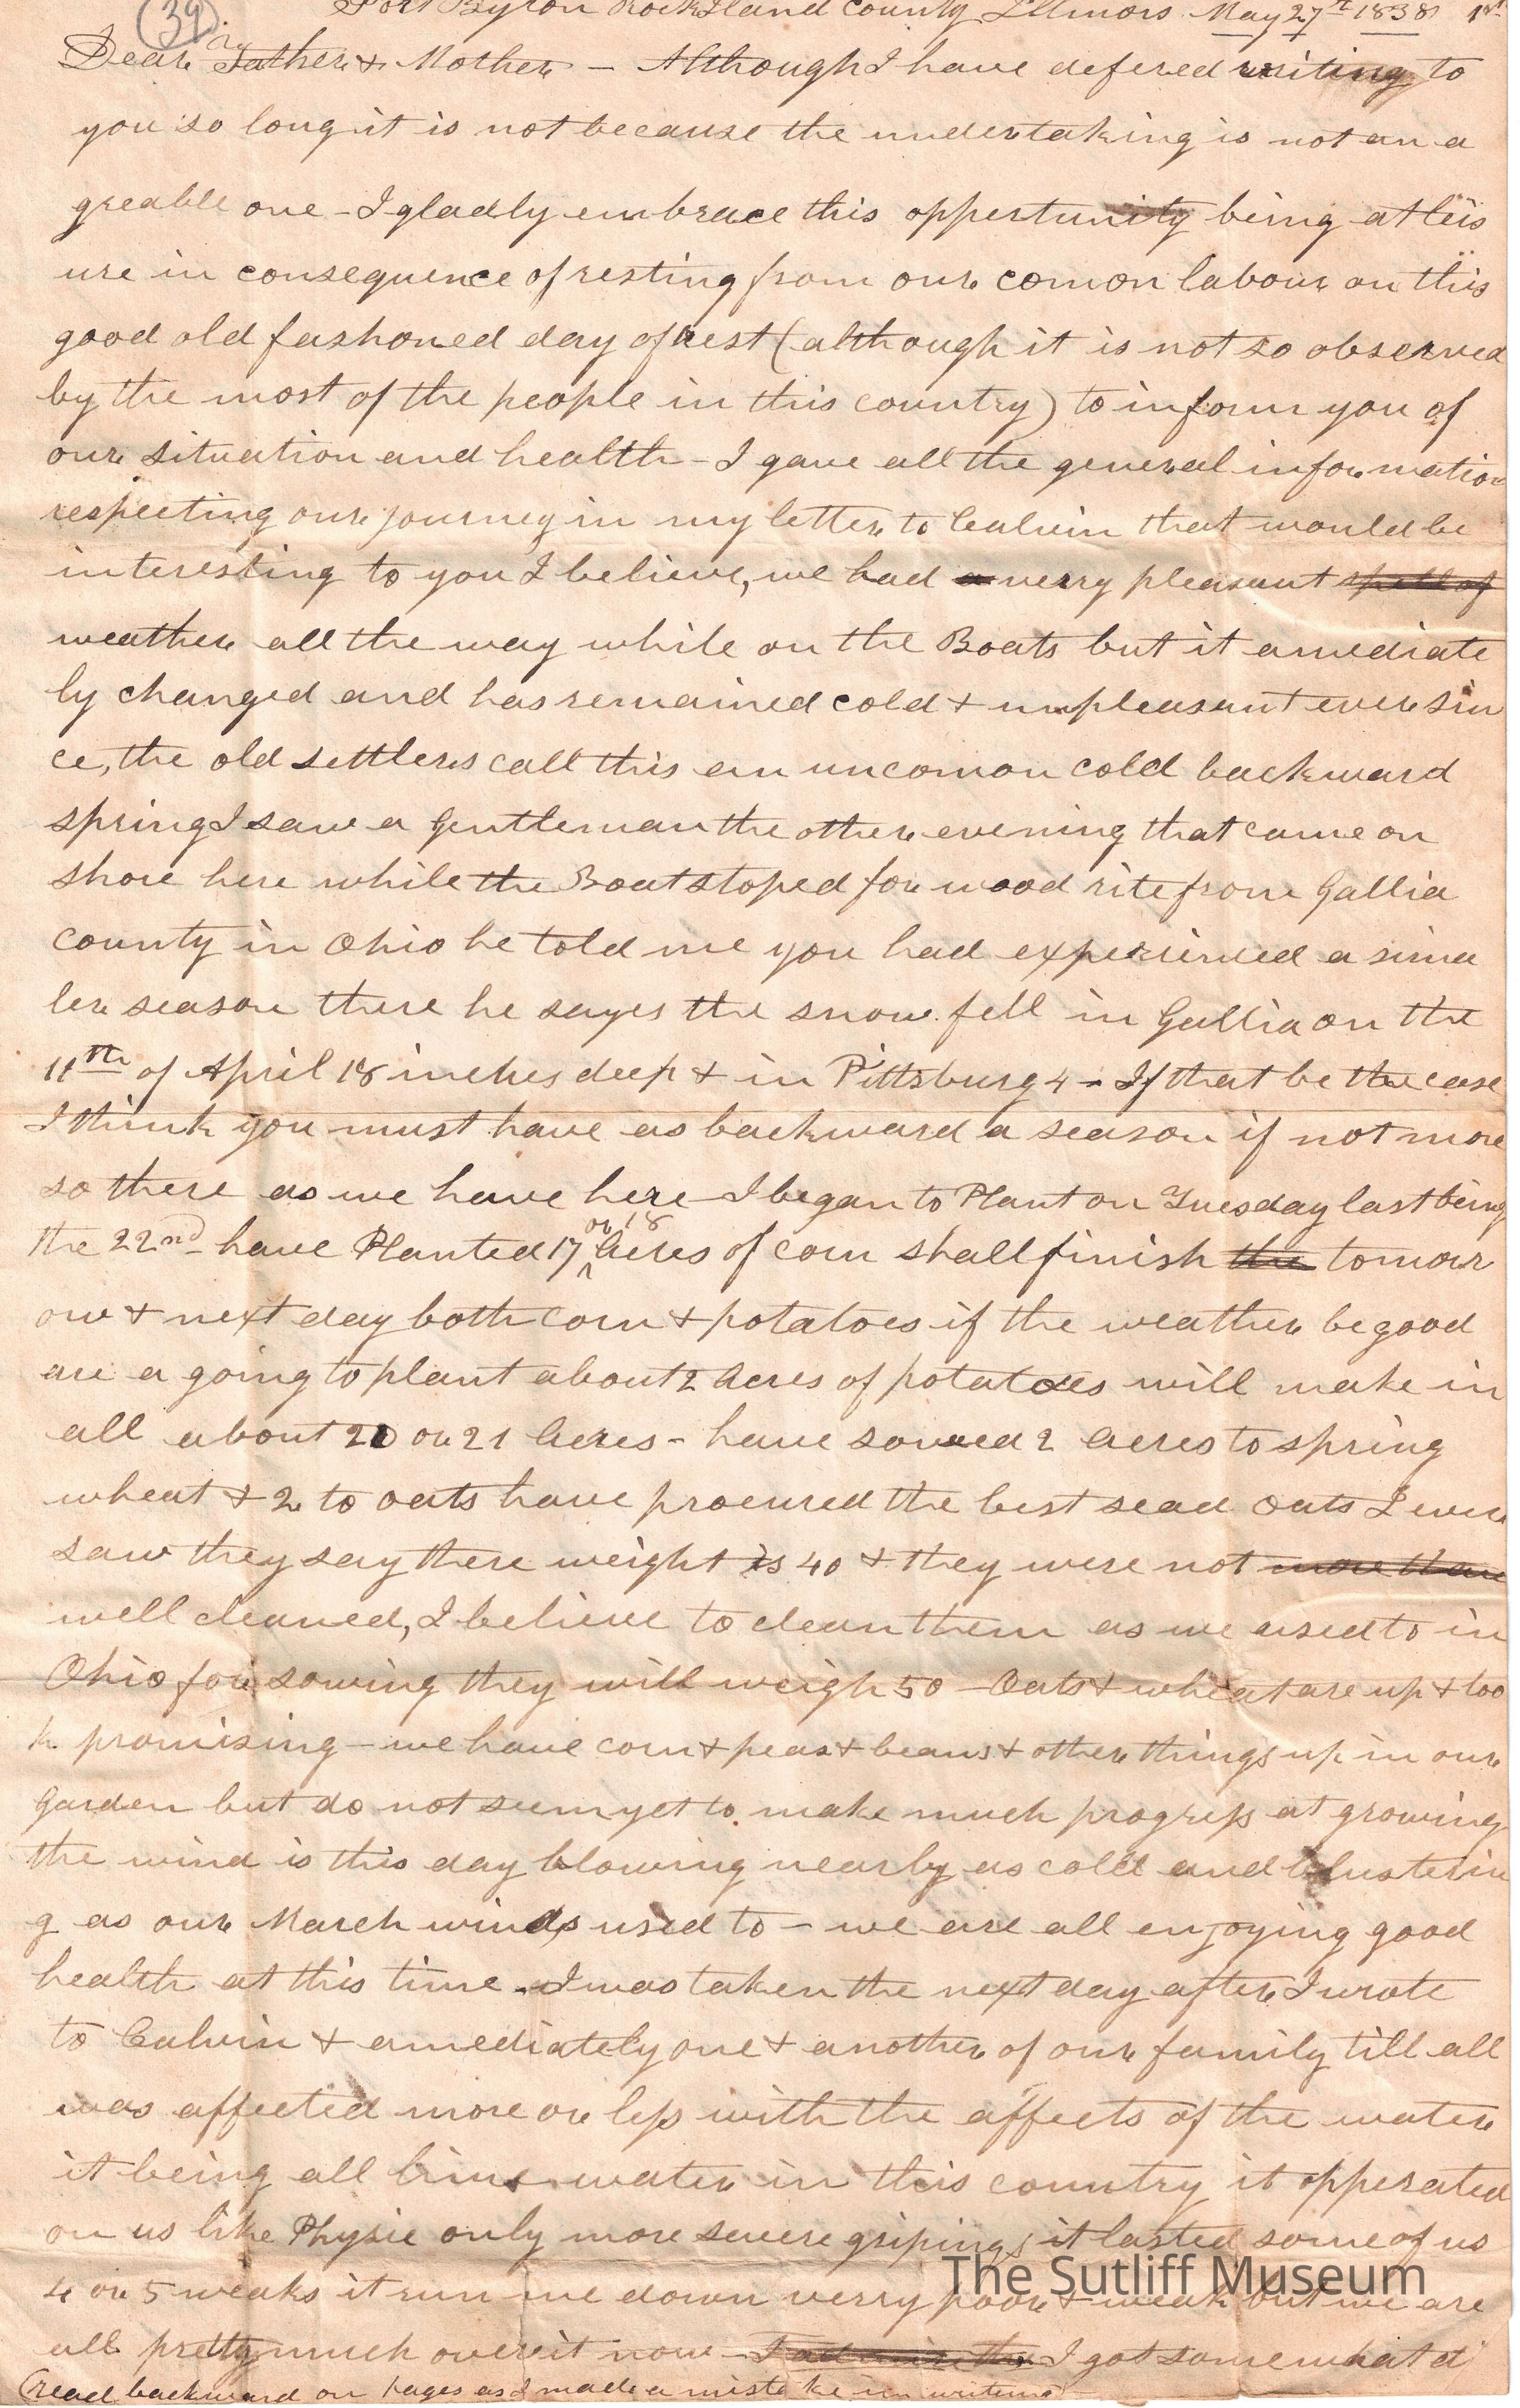 (39) Port Byron Rock Island County Illinois May 27th 1838 1st
Dear Father & Mother — Although I have defered writing to
you so long it is not because the undertaking is not an a
greable one - I gladly embrace this oppertunity being at leis
ure in consequence of resting from our comon labour on this
good old fashoned day of rest (although it is not so observed
by the most of the people in this country) to inform you of
our situation and health - I gave all the general information
respecting our journey in my letter to Calvin that would be
interesting to you I believe, we had a verry pleasant spell of
weather all the way while on the Boats but it amediate
ly changed and has remained cold & unpleasant ever sin
ce, the old settlers call this an uncomon cold backward
spring I saw a Gentleman the other evening that came on
shore here while the Boat stoped for wood rite from Gallia
county in Ohio he told me you had experienced a sima
ler season there he sayes the snow fell in Gallia on the
11th of April 18 inches deep & in Pittsburg 4 - If that be the case
I think you must have as backward a season if not more
so there as we have here - I began to Plant on Tuesday last being
the 22nd - have Planted 17 or 18 Acres of corn shall finish the tomorr
ow & next day both corn & potatoes if the weather be good
are a going to plant about 2 Acres of potatoes will make in
all about 20 or 21 Acres - have sowed 2 Acres to spring
wheat & 2 to oats have procured the best sead oats I ever
saw they say there weight is 40 & they were not more than
well cleaned, I believe to clean them as we used to in
Ohio for sowing they will weigh 50 - Oats & wheat are up & loo
k promising - we have corn & peas & beans & other things up in our
garden but do not seem yet to make much progress at growing
the wind is this day blowing nearly as cold and blusterin
g as our March winds used to - we are all enjoying good
health at this time - I was taken the next day after I wrote
to Calvin & amediately one & another of our family till all
was affected more or less with the affects of the water
it being all lime water in this country it opperated
on us like Physic only more severe gripings it lasted some of us
4 or 5 weaks it run me down verry poor & weak but we are
all pretty much over it now - I got somewhat d
(read backward on pages as I made a mistake in writing
The Sutliff Museum